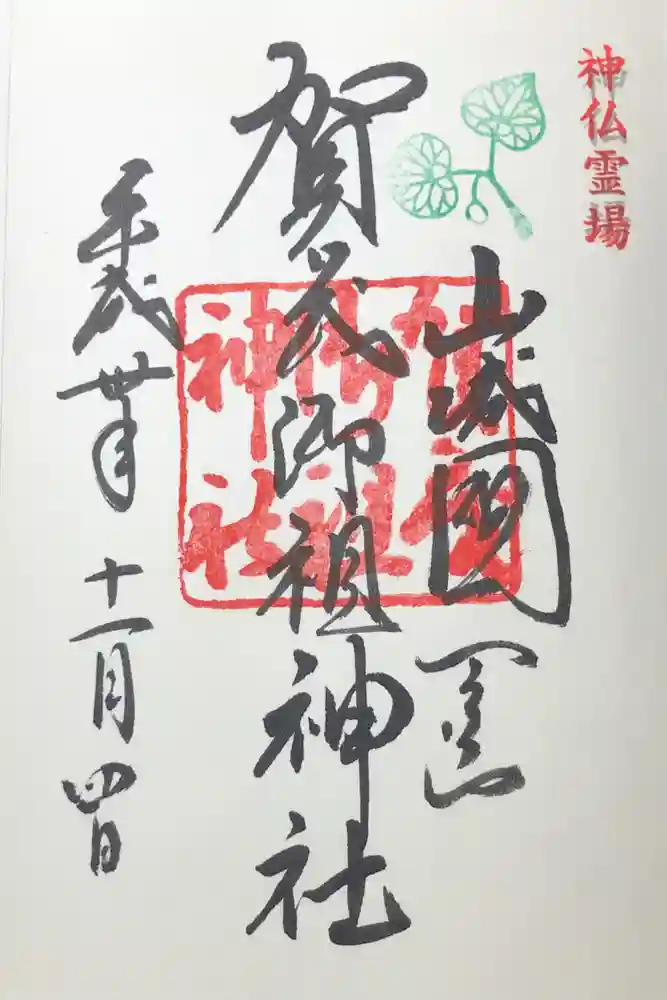 神仏霊場
山城國一宮
賀茂御祖神社
平成卅年十一月四日
賀茂
御祖
神社